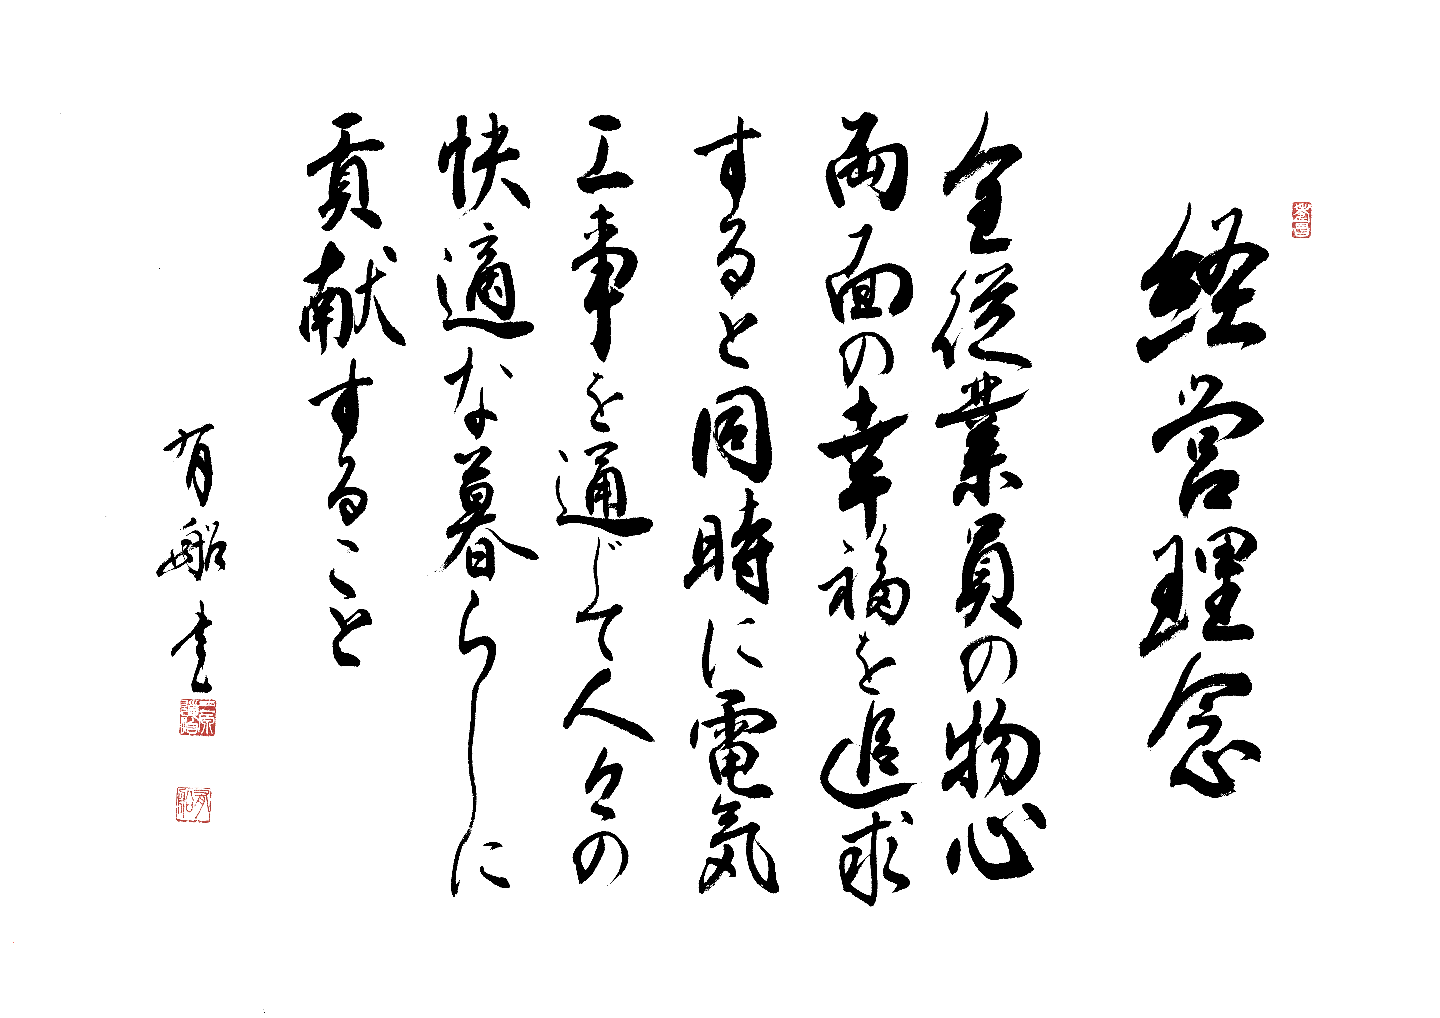 経営理念
全従業員の物心
両面の幸福を追求
すると同時に電気
工事を通じて人々の
快適な暮らしに
貢献すること
有船書